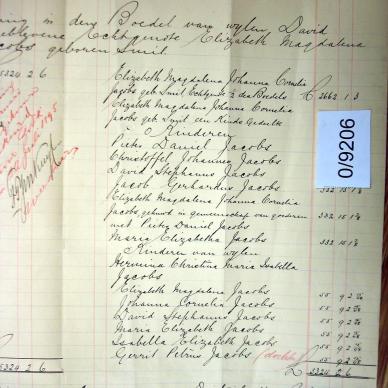 in den Boedel van wylen David
Echtgenote Elizabeth Magdalena
Jacobs geboren Smit.
5324 2 6
Elizabeth Magdalena Johanna Cornelia
Jacobs geb Smit Echtgenote ½ des Boedels £ 2662 1 3
Elizabeth Magdalena Johanna Cornelia
Jacobs geb Smit een Kinds Gedeelte
Kinderen
Pieter Daniel Jacobs
Christoffel Johannes Jacobs
David Stephanus Jacobs
Jacob Gerhardus Jacobs 332 15 1⅞
Elizabeth Magdalena Johanna Cornelia
Jacobs gehuwd in gemeenschap van goederen 332 15 1⅞
met Pieter Daniel Jacobs
Maria Elizabetha Jacobs 332 15 1⅞
Kinderen van wylen
Hermina Christina Maria Isabella
Jacobs
Elizabeth Magdalena Jacobs 55 9 2
Johanna Cornelia Jacobs 55 9 2
David Stephanus Jacobs 55 9 2
Maria Elizabeth Jacobs 55 9 2
Isabella Elizabeth Jacobs 55 9 2
Gerrit Petrus Jacobs 55 9 2
5324 2 6 £ 5324 2 6
0/9206